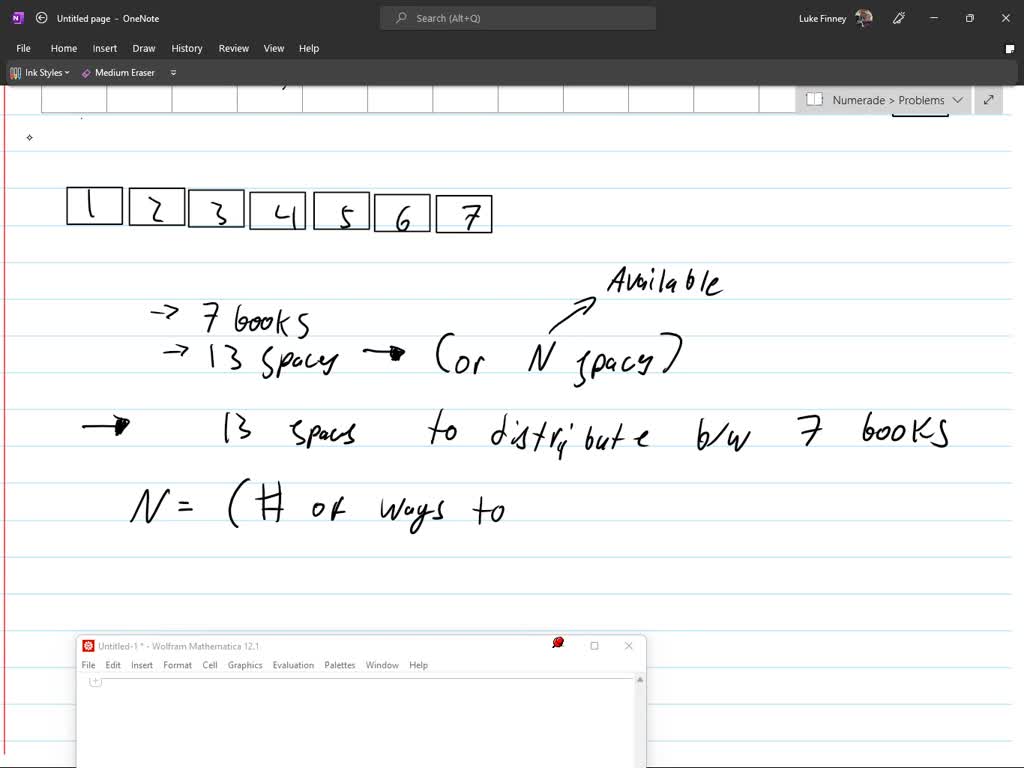 Untitled page - OneNote
Search (Alt+Q)
Luke Finney
File Home Insert Draw History Review View Help
Ink Styles Medium Eraser
Numerade > Problems
1 2 3 4 5 6 7
Available
→ 7 books
→ 13 spaces → (or N spaces)
→ 13 spaces to distribute b/w 7 books
N = (# of ways to
Untitled-1 * - Wolfram Mathematica 12.1
File Edit Insert Format Cell Graphics Evaluation Palettes Window Help